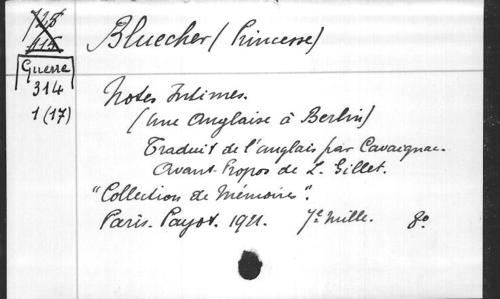 Bluecher (Princesse)
Guerre
314
1 (17)
Notes Intimes.
(Une Anglaise à Berlin)
Traduit de l'anglais par Cavaignac.
Avant-Propos de L. Gillet.
"Collection de Mémoires".
Paris. Payot. 1921. 7e mille. 8o